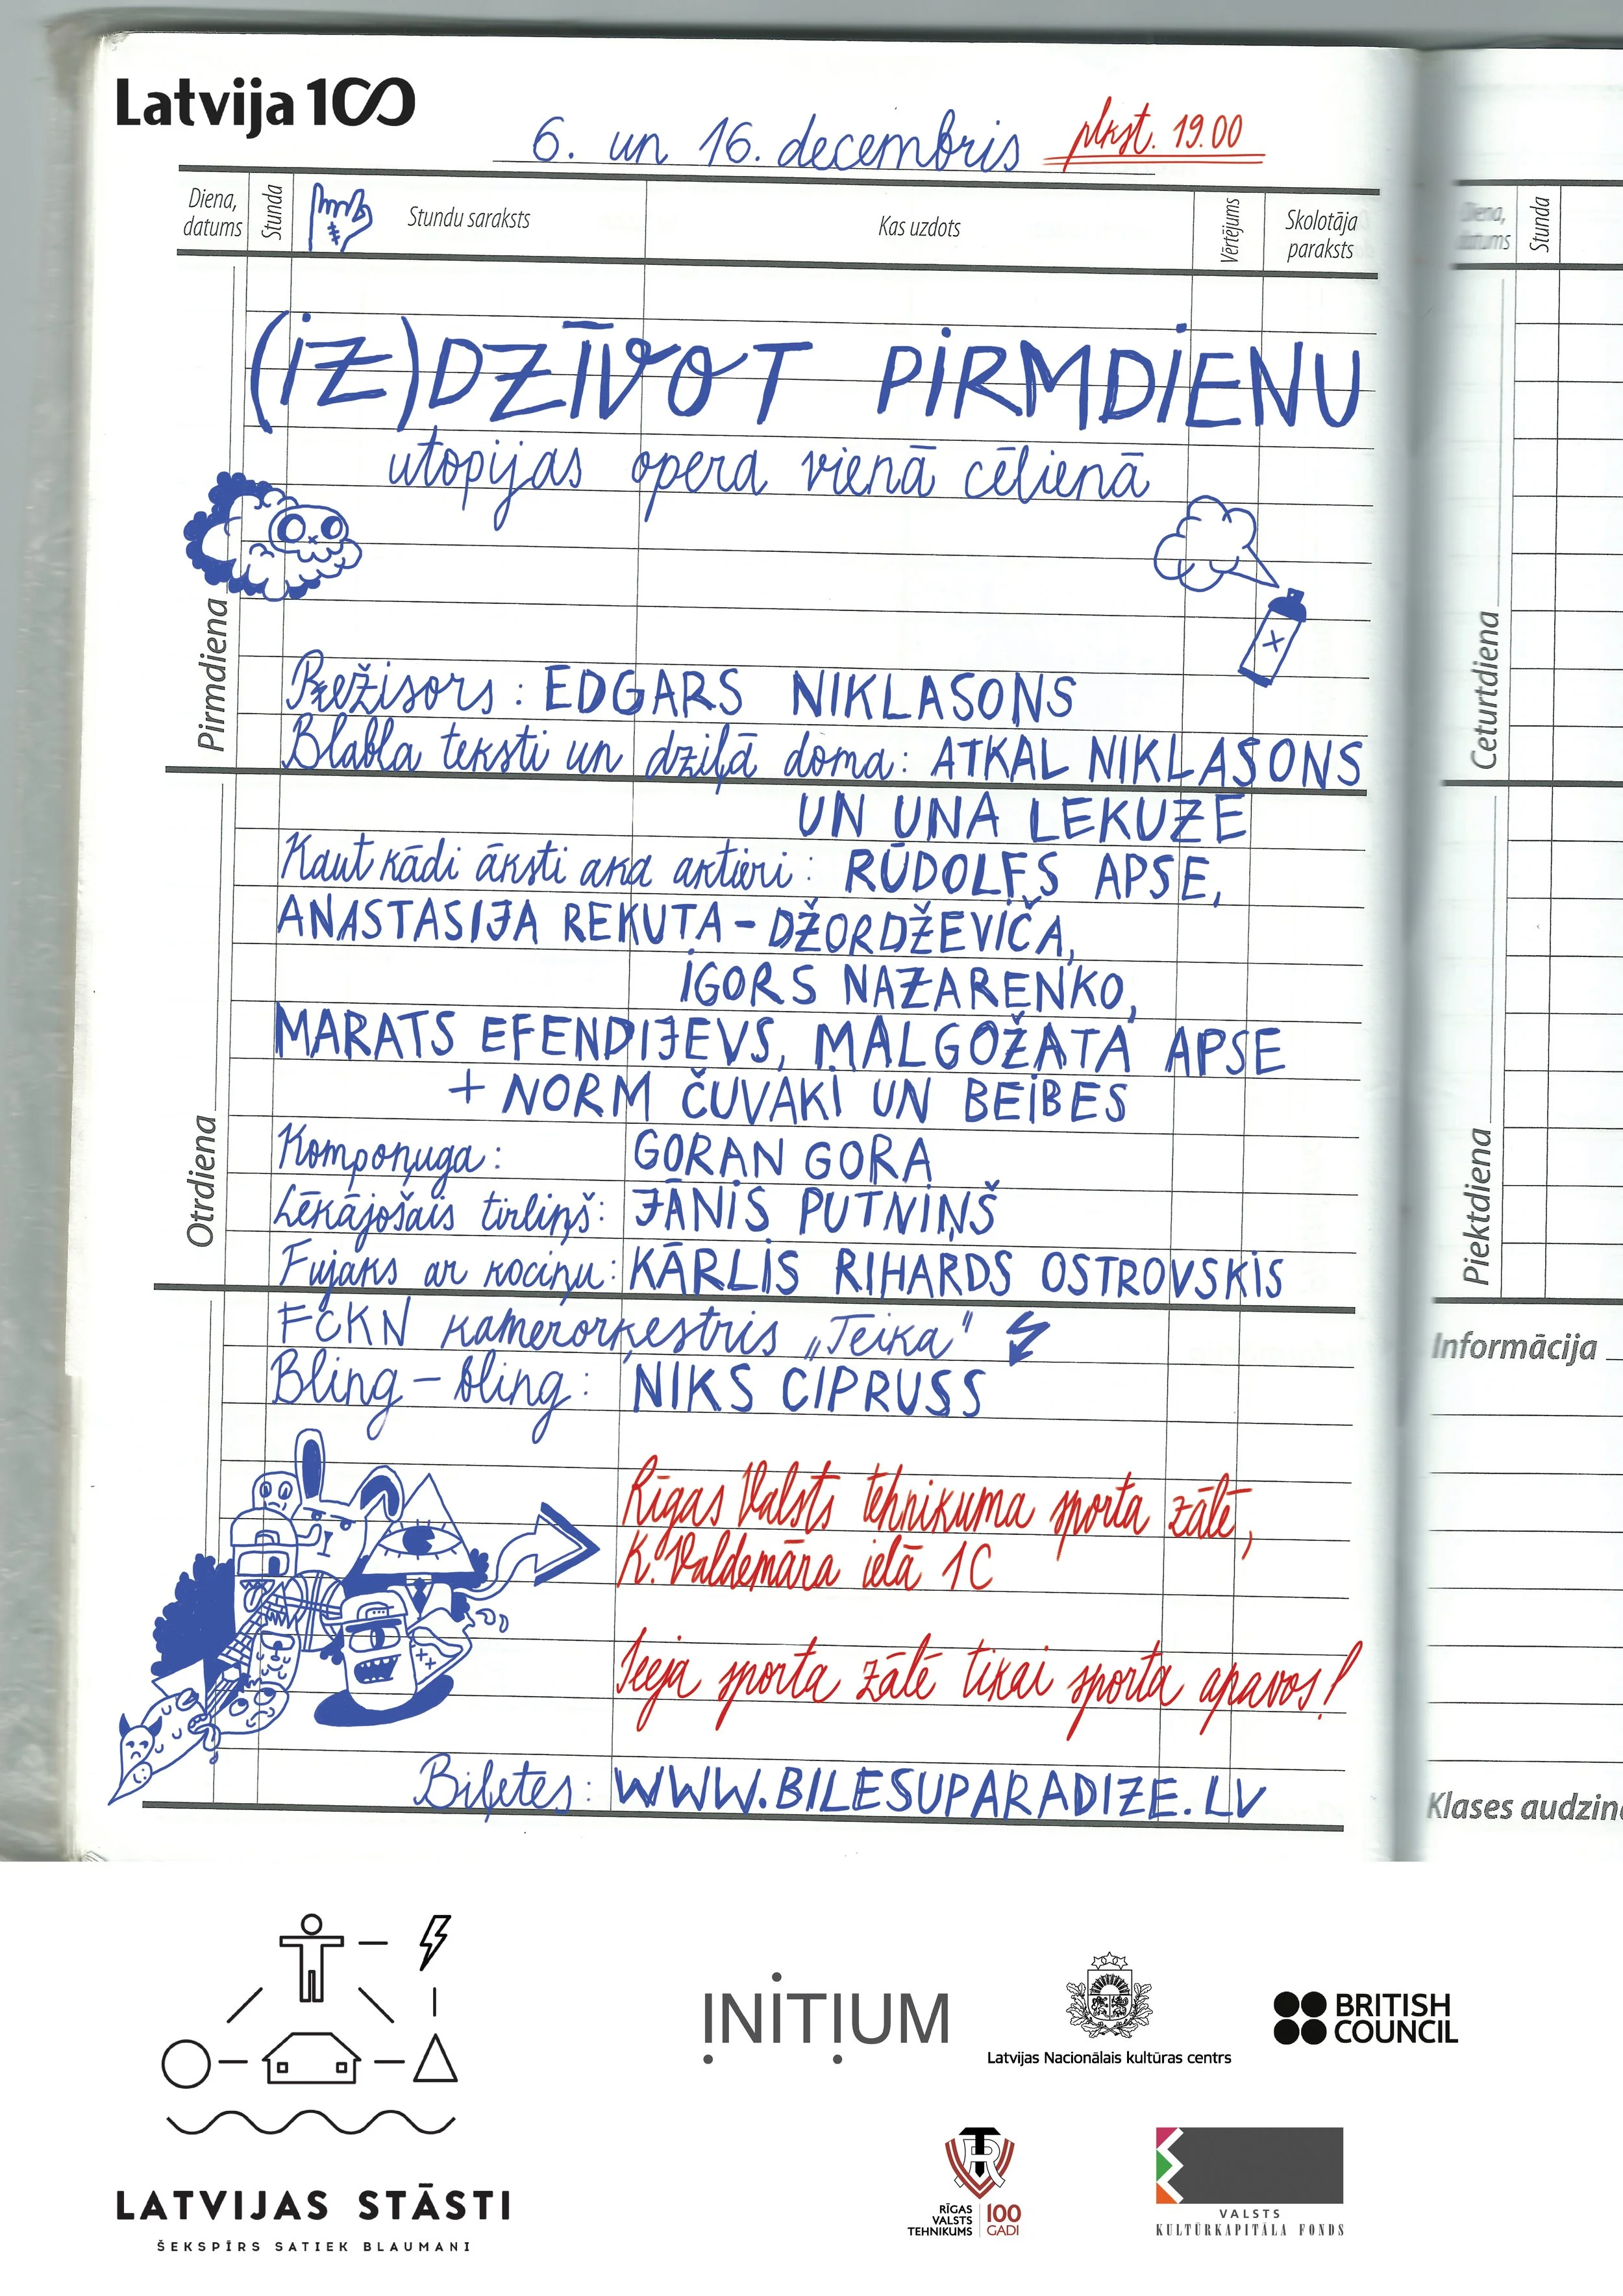 Latvija 100
6. un 16. decembris plkst. 19.00
Diena, datums
Stunda
Stundu saraksts
Kas uzdots
Vērtējums
Skolotāja paraksts
Diena, datums
Stunda
(iZ)DZĪVOT PiRMDiENU
utopijas opera vienā cēlienā
Pirmdiena
Režisors: EDGARS NIKLASONS
Blabla teksti un dziļā doma: ATKAL NIKLASONS
UN UNA LEKUZE
Kaut kādi āksti aka aktieri: RŪDOLFS APSE,
ANASTASIJA REKUTA-DŽORDŽEVIČA,
IGORS NAZARENKO,
MARATS EFENDIJEVS, MALGOŽATA APSE
+ NORM ČUVAKI UN BEIBES
Otrdiena
Kompoņuga: GORAN GORA
Lēkājošais tirliņš: JĀNIS PUTNIŅŠ
Fujaks ar kociņu: KĀRLIS RIHARDS OSTROVSKIS
FCKN kamerorķestris „Teika"
Bling-bling: NIKS CIPRUSS
Rīgas Valsts tehnikuma sporta zālē,
K. Valdemāra ielā 1C
Ieeja sporta zālē tikai sporta apavos!
Biļetes: WWW.BILESUPARADIZE.LV
Ceturtdiena
Piektdiena
Informācija
Klases audzin
LATVIJAS STĀSTI
ŠEKSPĪRS SATIEK BLAUMANI
INITIUM
Latvijas Nacionālais kultūras centrs
BRITISH
COUNCIL
RĪGAS
VALSTS
TEHNIKUMS
100
GADI
VALSTS
KULTŪRKAPITĀLA FONDS